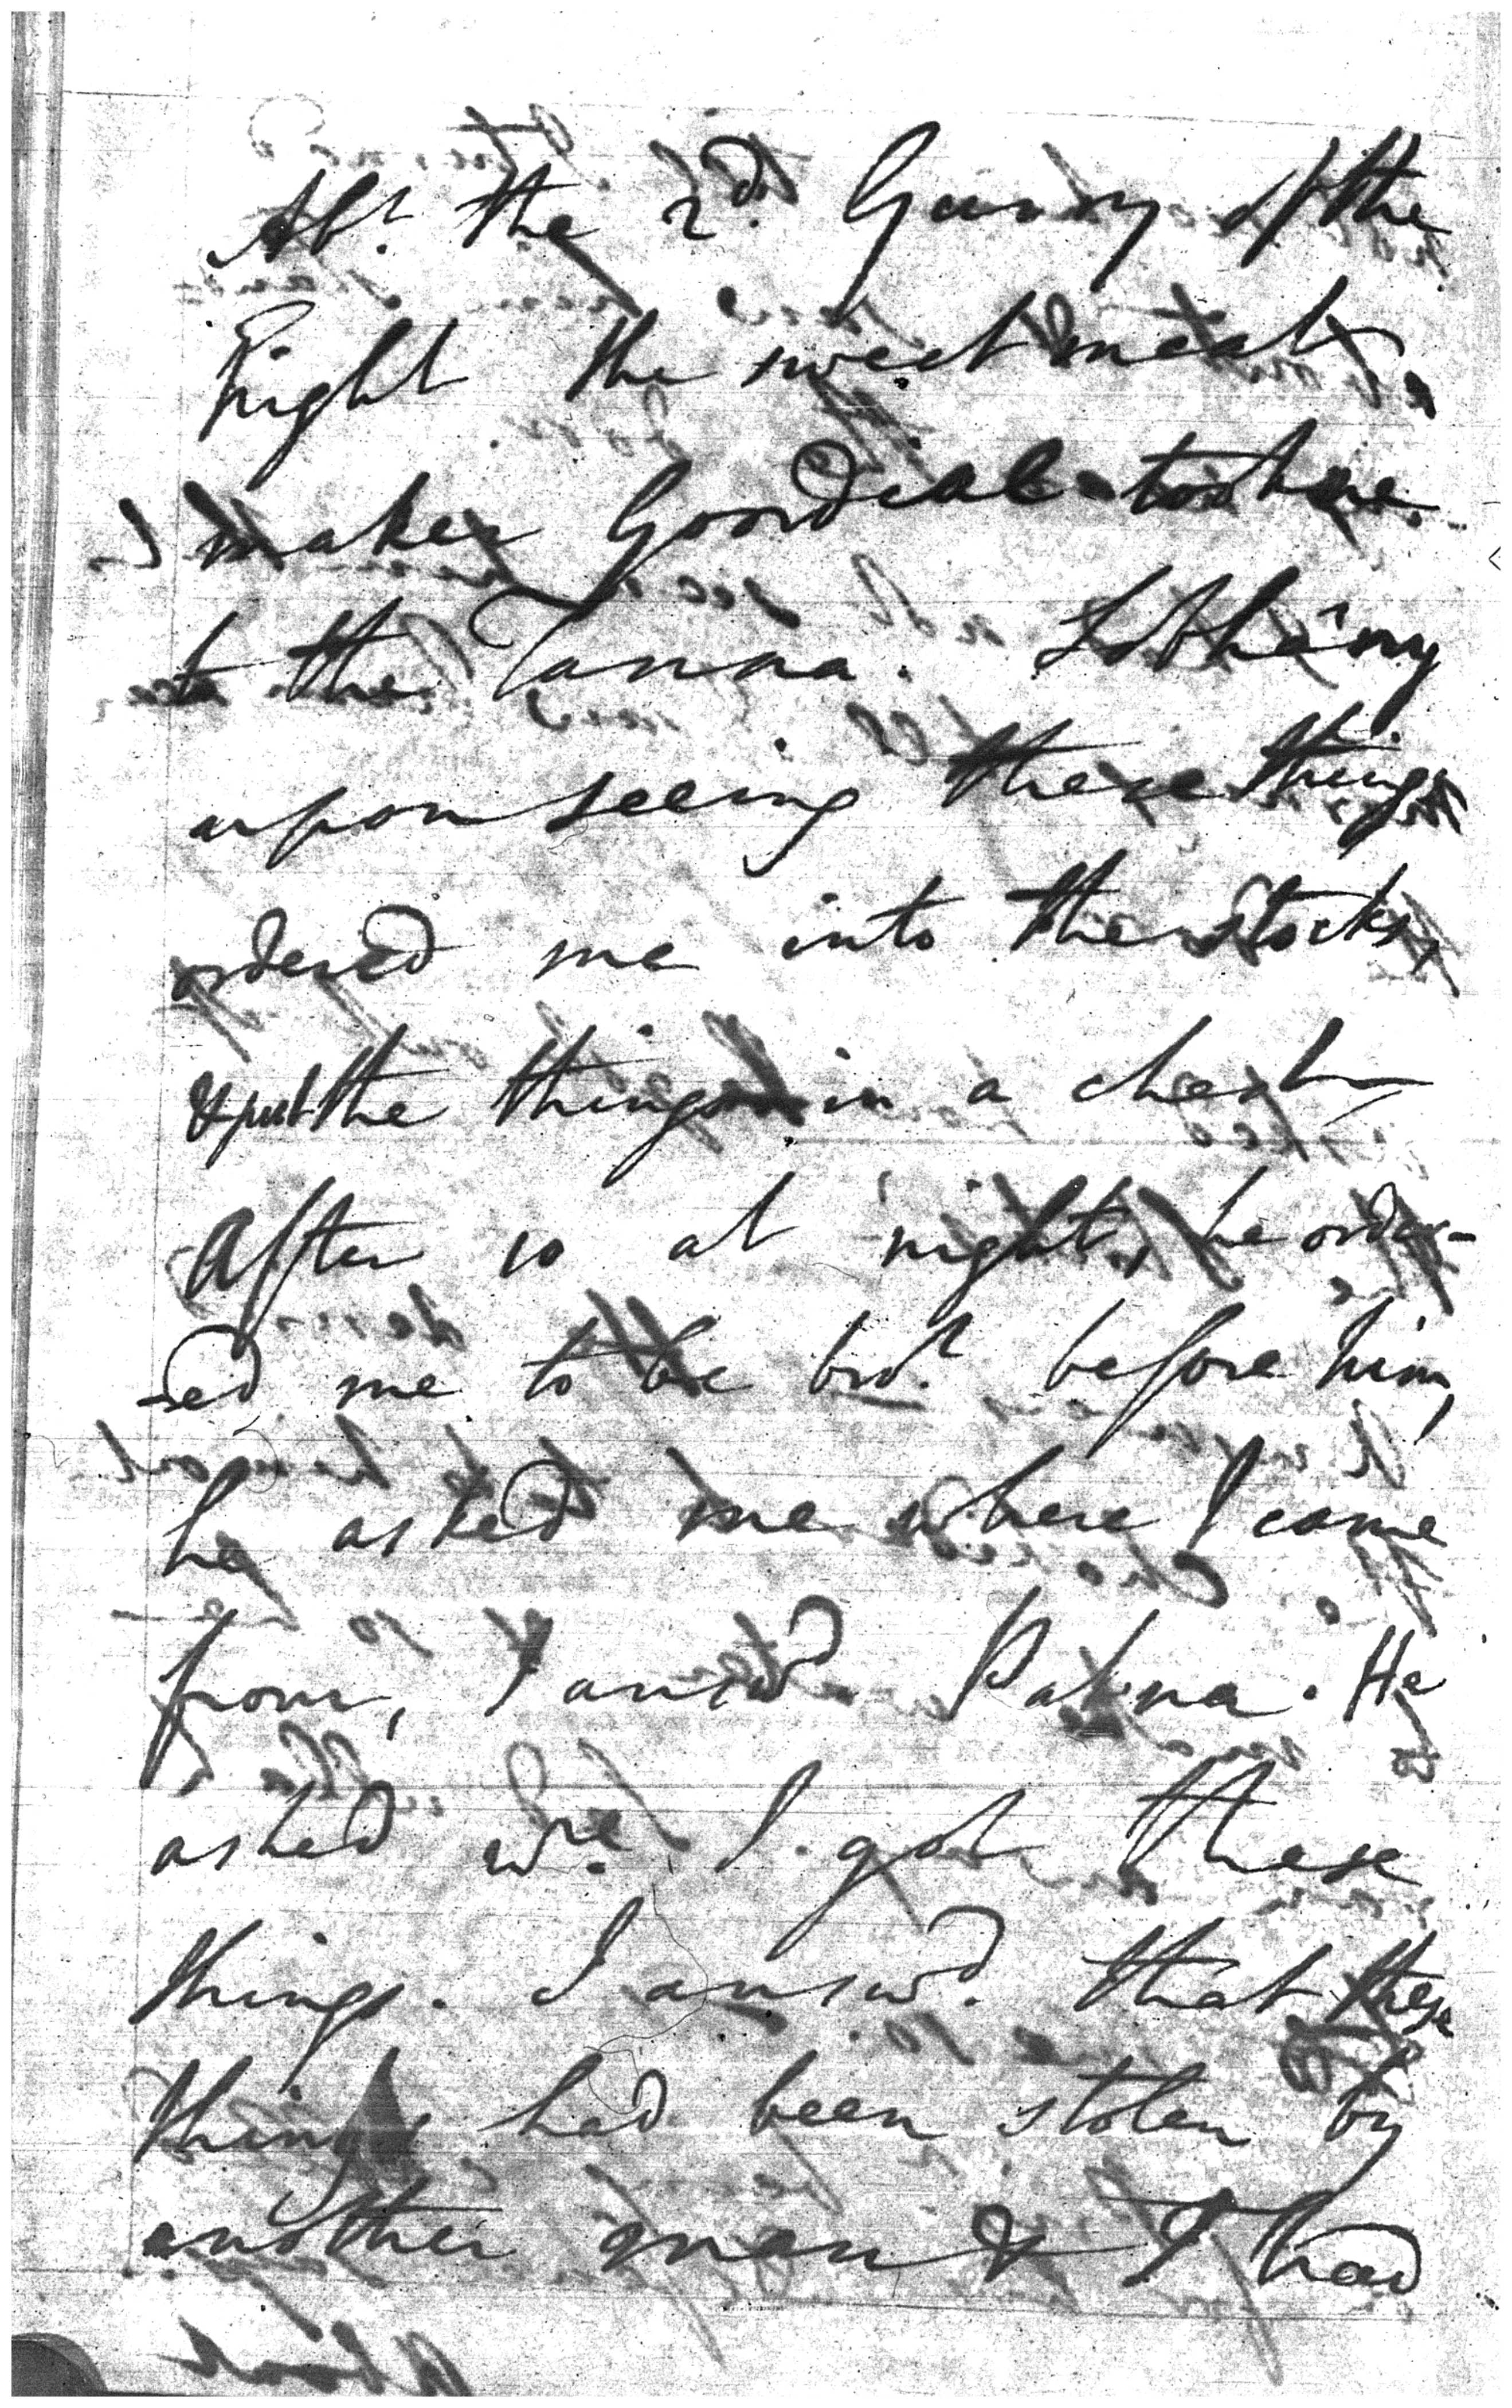 Abt. the 2d. Gurry of the
Night the sweetmeat
maker Goordial took me
to the Tanna. Lobhâny
upon seeing these things
ordered me into the stocks,
& put the things in a chest
After 10 at night, he order-
-ed me to be brot. before him,
he asked me where I came
from, I answd. Patna. He
asked wre. I got these
things. I answd. that these
things had been stolen by
another man & I had